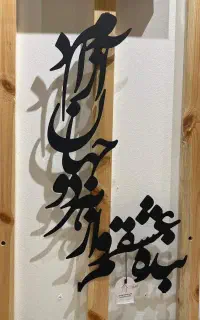 بنده عشقم و از هر دو جهان آزادم